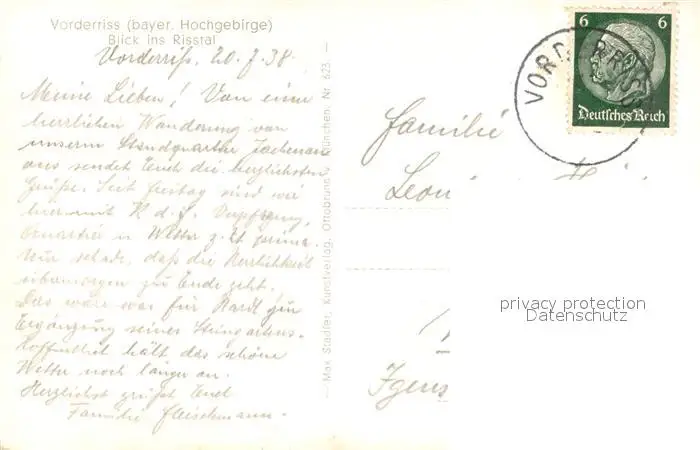 Vorderriss (bayer. Hochgebirge)
Blick ins Risstal
Vorderriß, 20.7.38.
Meine Lieben! Von einer
herrlichen Wanderung von
unserm Standquartier Jachenau
aus sendet Euch die herzlichsten
Grüße. Seit Freitag sind wir
hier mit K.d.F. Verpflegung,
Quartier u. Wetter z. Zt. prima.
Nur schade, daß die Herrlichkeit
übermorgen zu Ende geht.
Das wäre was für Karl zur
Ergänzung seines Steingartens.
Hoffentlich hält das schöne
Wetter noch länger an.
Herzlichst grüßt Euch
Familie Fleischmann.
Max Stadler, Kunstverlag, Ottobrunn München. Nr. 623
VORDERRISS
6 6
Deutsches Reich
Familie
Leon
privacy protection
Datenschutz
Igens